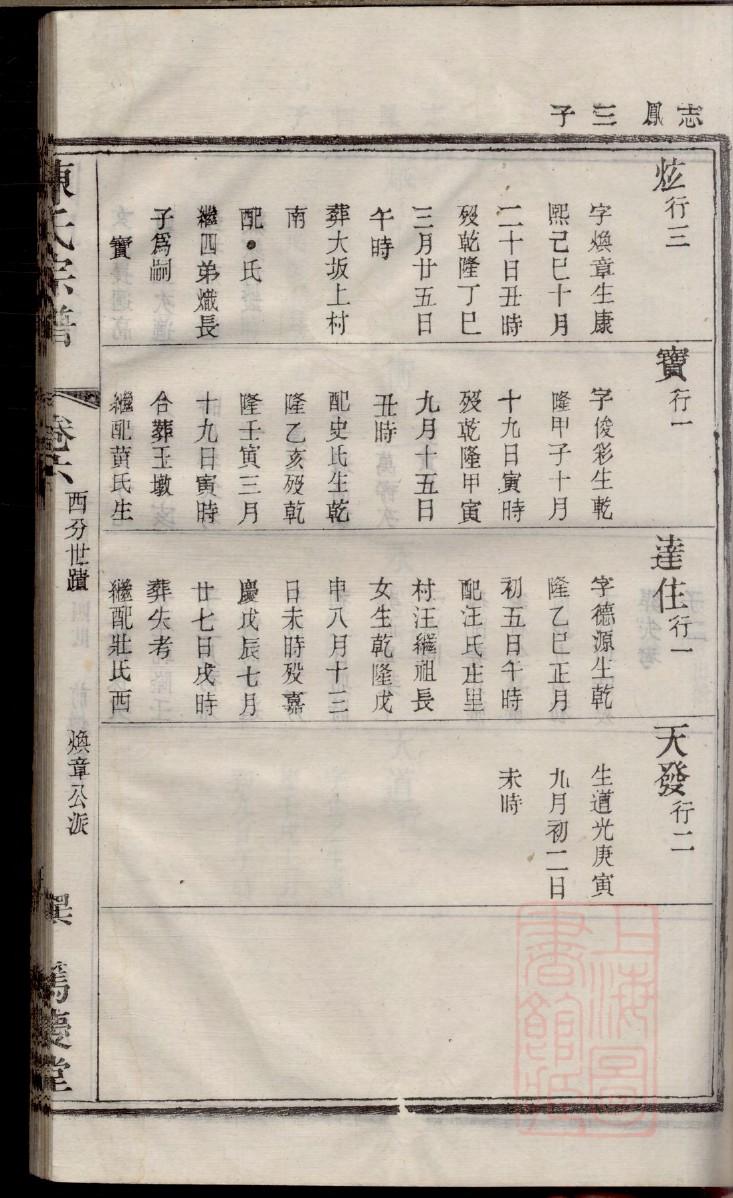 志鳳三子
炫行三
字煥章生康
熙己巳十月
二十日丑時
歿乾隆丁巳
三月廿五日
午時
葬大坂上村
南
配•氏
繼四弟熾長
子爲嗣
寶
寶行一
字俊彩生乾
隆甲子十月
十九日寅時
歿乾隆甲寅
九月十五日
丑時
配史氏生乾
隆乙亥歿乾
隆壬寅三月
十九日寅時
合葬玉墩
繼配黃氏生
達住行一
字德源生乾
隆乙巳正月
初五日午時
配汪氏庄里
村汪繼祖長
女生乾隆戊
申八月十三
日未時歿嘉
慶戊辰七月
廿七日戌時
葬失考
繼配壯氏西
天發行二
生道光庚寅
九月初二日
未時
陳氏宗譜
卷六
西分世蹟
煥章公派
巽
篤慶堂
上海圖書館藏